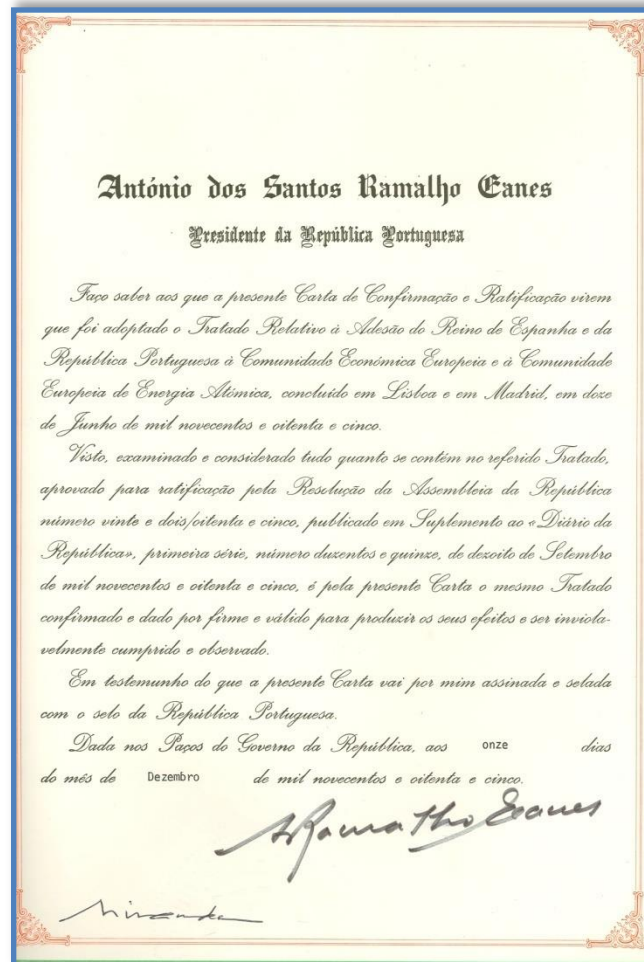 António dos Santos Ramalho Eanes
Presidente da República Portuguesa
Faço saber aos que a presente Carta de Confirmação e Ratificação virem
que foi adoptado o Tratado Relativo à Adesão do Reino de Espanha e da
República Portuguesa à Comunidade Económica Europeia e à Comunidade
Europeia de Energia Atómica, concluído em Lisboa e em Madrid, em doze
de Junho de mil novecentos e oitenta e cinco.
Visto, examinado e considerado tudo quanto se contém no referido Tratado,
aprovado para ratificação pela Resolução da Assembleia da República
número vinte e dois/oitenta e cinco, publicado em Suplemento ao «Diário da
República», primeira série, número duzentos e quinze, de dezoito de Setembro
de mil novecentos e oitenta e cinco, é pela presente Carta o mesmo Tratado
confirmado e dado por firme e válido para produzir os seus efeitos e ser inviola-
velmente cumprido e observado.
Em testemunho do que a presente Carta vai por mim assinada e selada
com o selo da República Portuguesa.
Dada nos Paços do Governo da República, aos onze dias
do mês de Dezembro de mil novecentos e oitenta e cinco.
ARamalho Eanes
Miranda